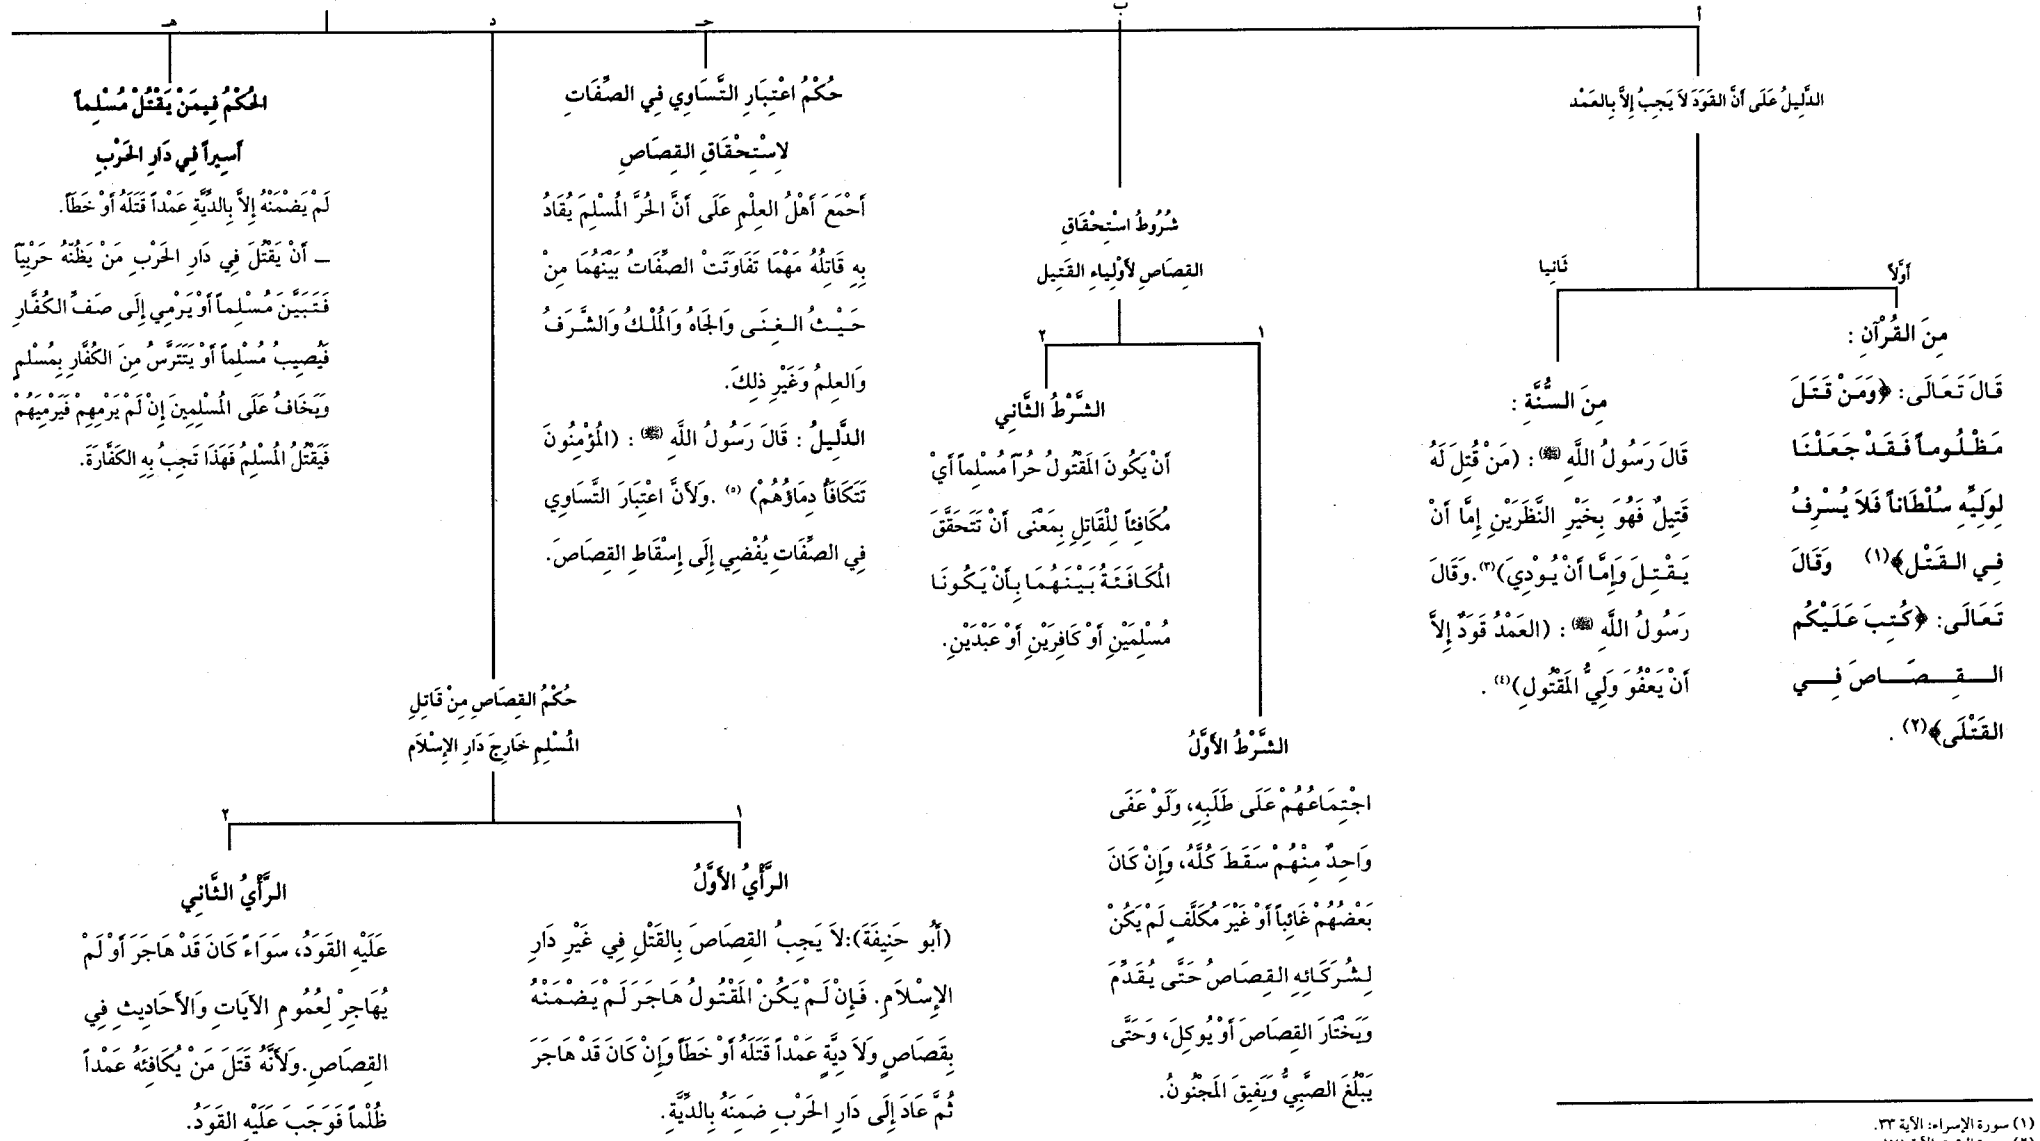 أ
الدَّلِيلُ عَلَى أَنَّ القَوَدَ لاَ يَجِبُ إِلاَّ بِالعَمْد
أَوَّلاً
مِنَ القُرْآنِ :
قَالَ تَعَالَى: ﴿وَمَنْ قَتَلَ
مَظْلُوماً فَقَدْ جَعَلْنَا
لِوَلِيِّهِ سُلْطَاناً فَلاَ يُسْرِفُ
فِي القَتْل﴾(١) وَقَالَ
تَعَالَى: ﴿كُتِبَ عَلَيْكُم
القِصَاصَ فِي
القَتْلَى﴾(٢) .
ثَانِيا
مِنَ السُّنَّةِ :
قَالَ رَسُولُ اللَّهِ (ﷺ) : (مَنْ قُتِلَ لَهُ
قَتِيلٌ فَهُوَ بِخَيْرِ النَّظَرَيْنِ إِمَّا أَنْ
يَقْتِلَ وَإِمَّا أَنْ يُودِيَ)(٣).وَقَالَ
رَسُولُ اللَّهِ (ﷺ) : (العَمْدُ قَوَدٌ إِلاَّ
أَنْ يَعْفُوَ وَلِيُّ المَقْتُولِ)(٤) .
ب
شُرُوطُ اسْتِحْقَاقِ
القِصَاصِ لأَوْلِيَاءِ القَتِيل
١
الشَّرْطُ الأَوَّلُ
اجْتِمَاعُهُمْ عَلَى طَلَبِهِ، وَلَوْ عَفَى
وَاحِدٌ مِنْهُمْ سَقَطَ كُلَّهُ، وَإِنْ كَانَ
بَعْضُهُمْ غَائِباً أَوْ غَيْرَ مُكَلَّفٍ لَمْ يَكُنْ
لِشُرَكَائِهِ القِصَاصُ حَتَّى يُقَدِّمَ
وَيَخْتَارَ القِصَاصَ أَوْ يُوكِلَ، وَحَتَّى
يَبْلُغَ الصَّبِيُّ وَيَفِيقَ المَجْنُونُ.
٢
الشَّرْطُ الثَّانِي
أَنْ يَكُونَ المَقْتُولُ حُرّاً مُسْلِماً أَيْ
مُكَافِئاً لِلْقَاتِلِ بِمَعْنَى أَنْ تَتَحَقَّقَ
المُكَافَئَةُ بَيْنَهُمَا بِأَنْ يَكُونَا
مُسْلِمَيْنِ أَوْ كَافِرَيْنِ أَوْ عَبْدَيْنِ.
حـ
حُكْمُ اعْتِبَارِ التَّسَاوِي فِي الصِّفَاتِ
لاِسْتِحْقَاقِ القِصَاصِ
أَجْمَعَ أَهْلُ العِلْمِ عَلَى أَنَّ الحُرَّ المُسْلِمَ يُقَادُ
بِهِ قَاتِلُهُ مَهْمَا تَفَاوَتَتْ الصِّفَاتُ بَيْنَهُمَا مِنْ
حَيْثُ الغِنَى وَالجَاهُ وَالمُلْكُ وَالشَّرَفُ
وَالعِلمُ وَغَيْرِ ذلِكَ.
الدَّلِيلُ : قَالَ رَسُولُ اللَّهِ (ﷺ) : (المُؤْمِنُونَ
تَتَكَافَأُ دِمَاؤُهُمْ) (٥) .وَلأَنَّ اعْتِبَارَ التَّسَاوِي
فِي الصِّفَاتِ يُفْضِي إِلَى إِسْقَاطِ القِصَاصَ.
د
حُكْمُ القِصَاصِ مِنْ قَاتِلِ
المُسْلِمِ خَارِجَ دَارِ الإِسْلاَم
١
الرَّأْيُ الأَوَّلُ
(أَبُو حَنِيفَةَ):لاَ يَجِبُ القِصَاصَ بِالقَتْلِ فِي غَيْرِ دَارِ
الإِسْلاَمِ. فَإِنْ لَمْ يَكُنْ المَقْتُولُ هَاجَرَ لَمْ يَضْمَنْهُ
بِقَصَاصٍ وَلاَ دِيَّةٍ عَمْداً قَتَلَهُ أَوْ خَطَأً وَإِنْ كَانَ قَدْ هَاجَرَ
ثُمَّ عَادَ إِلَى دَارِ الحَرْبِ ضَمِنَهُ بِالدِّيَّةِ.
٢
الرَّأْيُ الثَّانِي
عَلَيْهِ القَوَدُ، سَوَاءً كَانَ قَدْ هَاجَرَ أَوْ لَمْ
يُهَاجِرْ لِعُمُومِ الآيَاتِ وَالأَحَادِيثِ فِي
القِصَاصِ.وَلأَنَّهُ قَتَلَ مَنْ يُكَافِئَهُ عَمْداً
ظُلْماً فَوَجَبَ عَلَيْهِ القَوَدُ.
هـ
الحُكْمُ فِيمَنْ يَقْتُلْ مُسْلِماً
أَسِيراً فِي دَارِ الحَرْبِ
لَمْ يَضْمَنْهُ إِلاَّ بِالدِّيَّةِ عَمْداً قَتَلَهُ أَوْ خَطَأً.
ــ أَنْ يَقْتُلَ فِي دَارِ الحَرْبِ مَنْ يَظُنّهُ حَرْبِيّاً
فَتَبَيَّنَ مُسْلِماً أَوْ يَرْمِي إِلَى صَفِّ الكُفَّارِ
فَيُصِيبُ مُسْلِماً أَوْ يَتَتَرَّسُ مِنَ الكُفَّارِ بِمُسْلمٍ
وَيَخَافُ عَلَى المُسْلِمِينَ إِنْ لَمْ يَرْمِهِمْ فَيَرْمِيَهُمْ
فَيَقْتُلُ المُسْلِمُ فَهَذَا تَجِبُ بِهِ الكَفَّارَةَ.
(١) سورة الإسراء: الآية ٣٣.